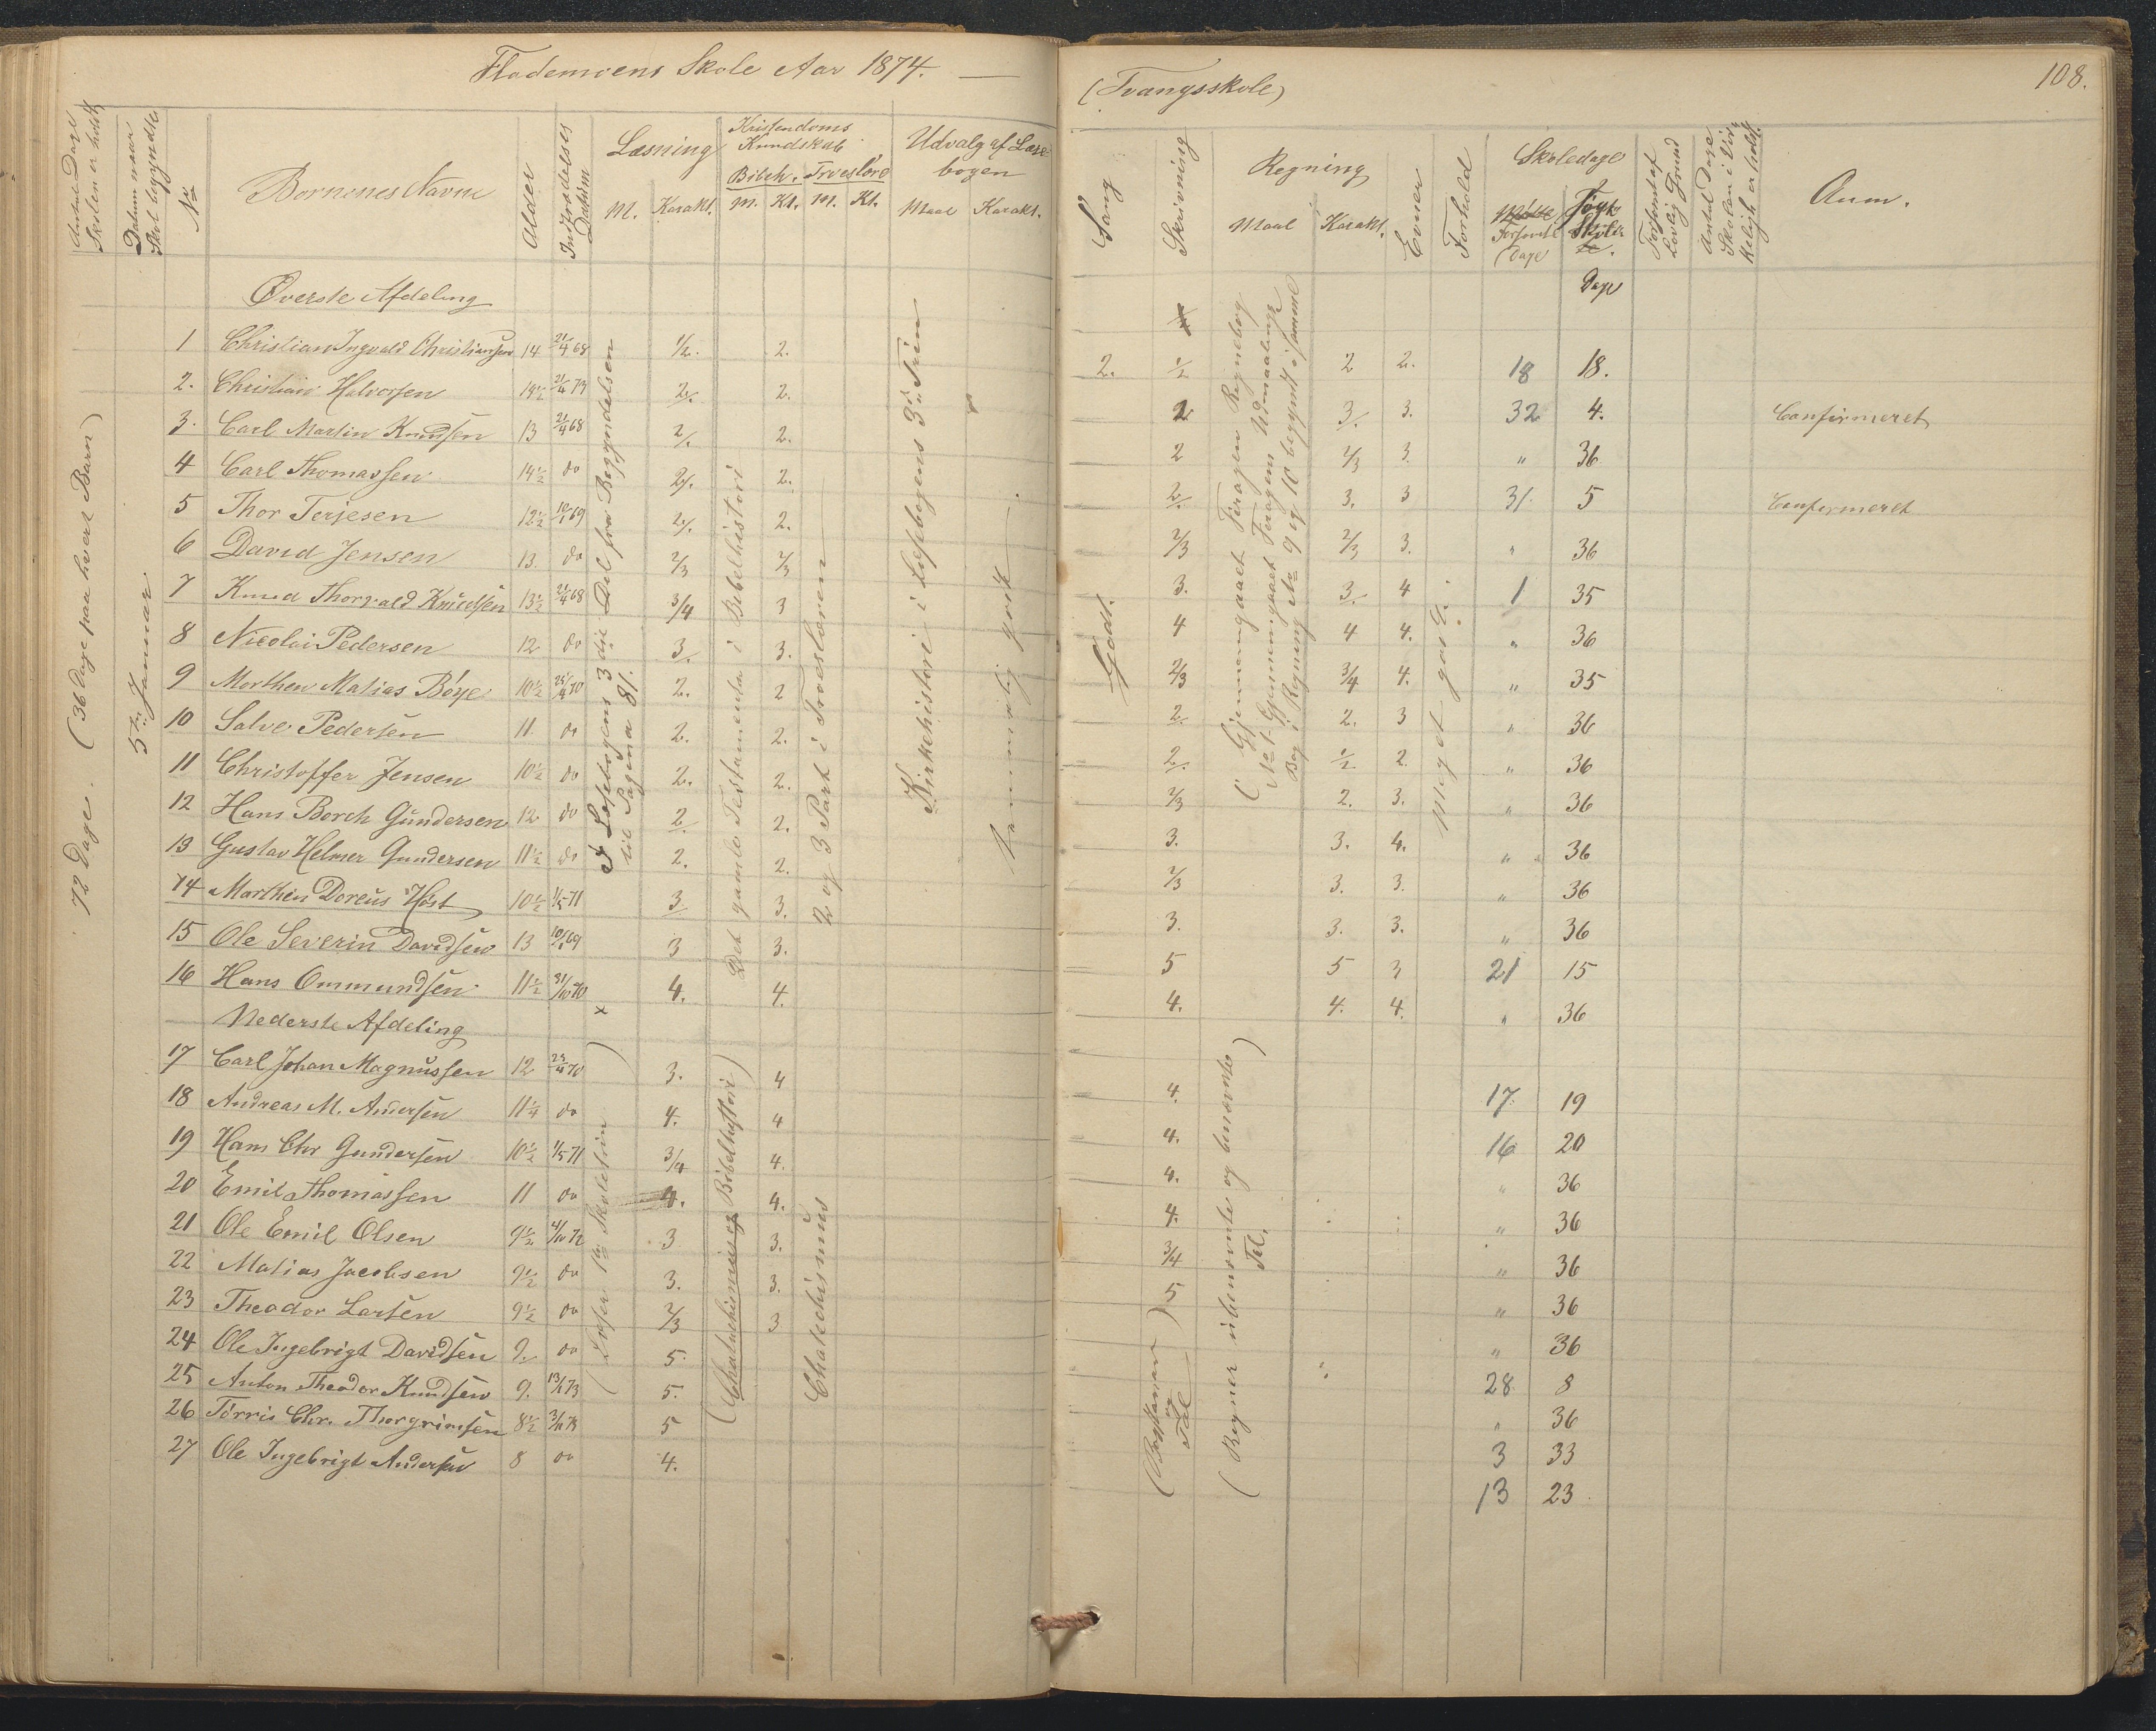 Flademoens Skole Aar 1874. —
(Tvangsskole)
108.
Antal Dage Skolen er holdt
Datum naar Skol. begyndte
No
Børnenes Navne
Alder
Indtrædelses Datum
Læsning
M. Karakt.
Kristendoms Kundskab
Bibelh. Troeslære
M. Kt. M. Kt.
Udvalg af Læsebogen
Maal Karakt.
Sang
Skrivning
Regning
Maal Karakt.
Evner
Forhold
Skoledage
Forsømte Dage
Søgte Dage
Forsømt af Lovlig Grund
Antal Dage Skolen i Virkeligh. er holdt.
Anm.
72 Dage. (36 Dage paa hvert Barn)
5te Januar.
Øverste Afdeling
1 Christian Ingvald Christiansen 14 21/4 68 1/2. 2. 2. 1/2 2 2. 18 18.
2. Christian Halvorsen 14½ 21/4 73 2/. 2. 2 3/. 3. 32 4. Confirmeret
3. Carl Martin Knudsen 13 21/4 68 2/. 2. 2 2/3 3. " 36
4 Carl Thomassen 14½ do 2/. 2. 2/. 3. 3 31. 5 Confirmeret
5 Thor Terjesen 12½ 10/1 69 2/. 2. 2/3 2/3 3. " 36
6 David Jensen 13. do 2/3 2/3 3. 3/. 4 1 35
7 Knud Thorvald Knudsen 13½ 21/4 68 3/4 3 4 4 4. " 36
8 Nicolai Pedersen 12 do 3/. 3. 2/3 3/4 4. " 35
9 Morthen Matias Böye 10½ 25/4 70 2. 2 2/. 2. 3 " 36
10 Salve Pedersen 11. do 2. 2. 2/. 1/2 2. " 36
11 Christoffer Jensen 10½ do 2. 2. 2/3 2. 3. " 36
12 Hans Borch Gundersen 12 do 2/. 2. 3. 3. 4. " 36
13 Gustav Helmer Gundersen 11½ do 2. 2. 2/3 3. 3. " 36
14 Morthen Doreus Høst 10½ 1/5 71 3/ 3. 3. 3. 3. " 36
15 Ole Severin Davidsen 13 10/1 69 3 3. 5 5 3 21 15
16 Hans Ommundsen 11½ 31/10 70 4. 4. 4. 4. 4. " 36
Nederste Afdeling
17 Carl Johan Magnussen 12 25/4 70 3. 4 4. 17. 19
18 Andreas M. Andersen 11¼ do 4. 4 4. 16 20
19 Hans Chr Gundersen 10½ 1/5 71 3/4 4. 4. " 36
20 Emil Thomassen 11 do 4. 4. 4. " 36
21 Ole Emil Olsen 9½ 4/10 72 3 3. 3/4 " 36
22 Matias Jacobsen 9½ do 3. 3. 5 " 36
23 Theodor Larsen 9½ do 2/3 3 " 36
24 Ole Ingebrigt Davidsen 9. do 5. 28. 8
25 Anton Theodor Knudsen 9. 13/1 73 5. " 36
26 Törris Chr. Thorgrimsen 8½ 3/11 73 5 3 33
27 Ole Ingebrigt Andersen 8 do 4. 13 23
I Læsebogens 3die Del fra Begyndelsen til Pagina 81.
Det gamle Testamente i Bibelhistori
2 og 3 Part i Troeslæren
Kirkehistorie i Læsebogens 3die Trin
Temmelig godt.
Godt.
(Gjennemgaaet Feragen Regnebog No 1. Gjennemgaaet Feragens Udmaalings Bog i Regning No 9 og 10 begyndt i samme)
Meget godt.
(Læser 1ste Skoletrin)
(Chatechismus og Bibelhistori)
Chatechismus
(Bogstaver og Tal)
(Regner ubenævnte og benævnte Tal.)